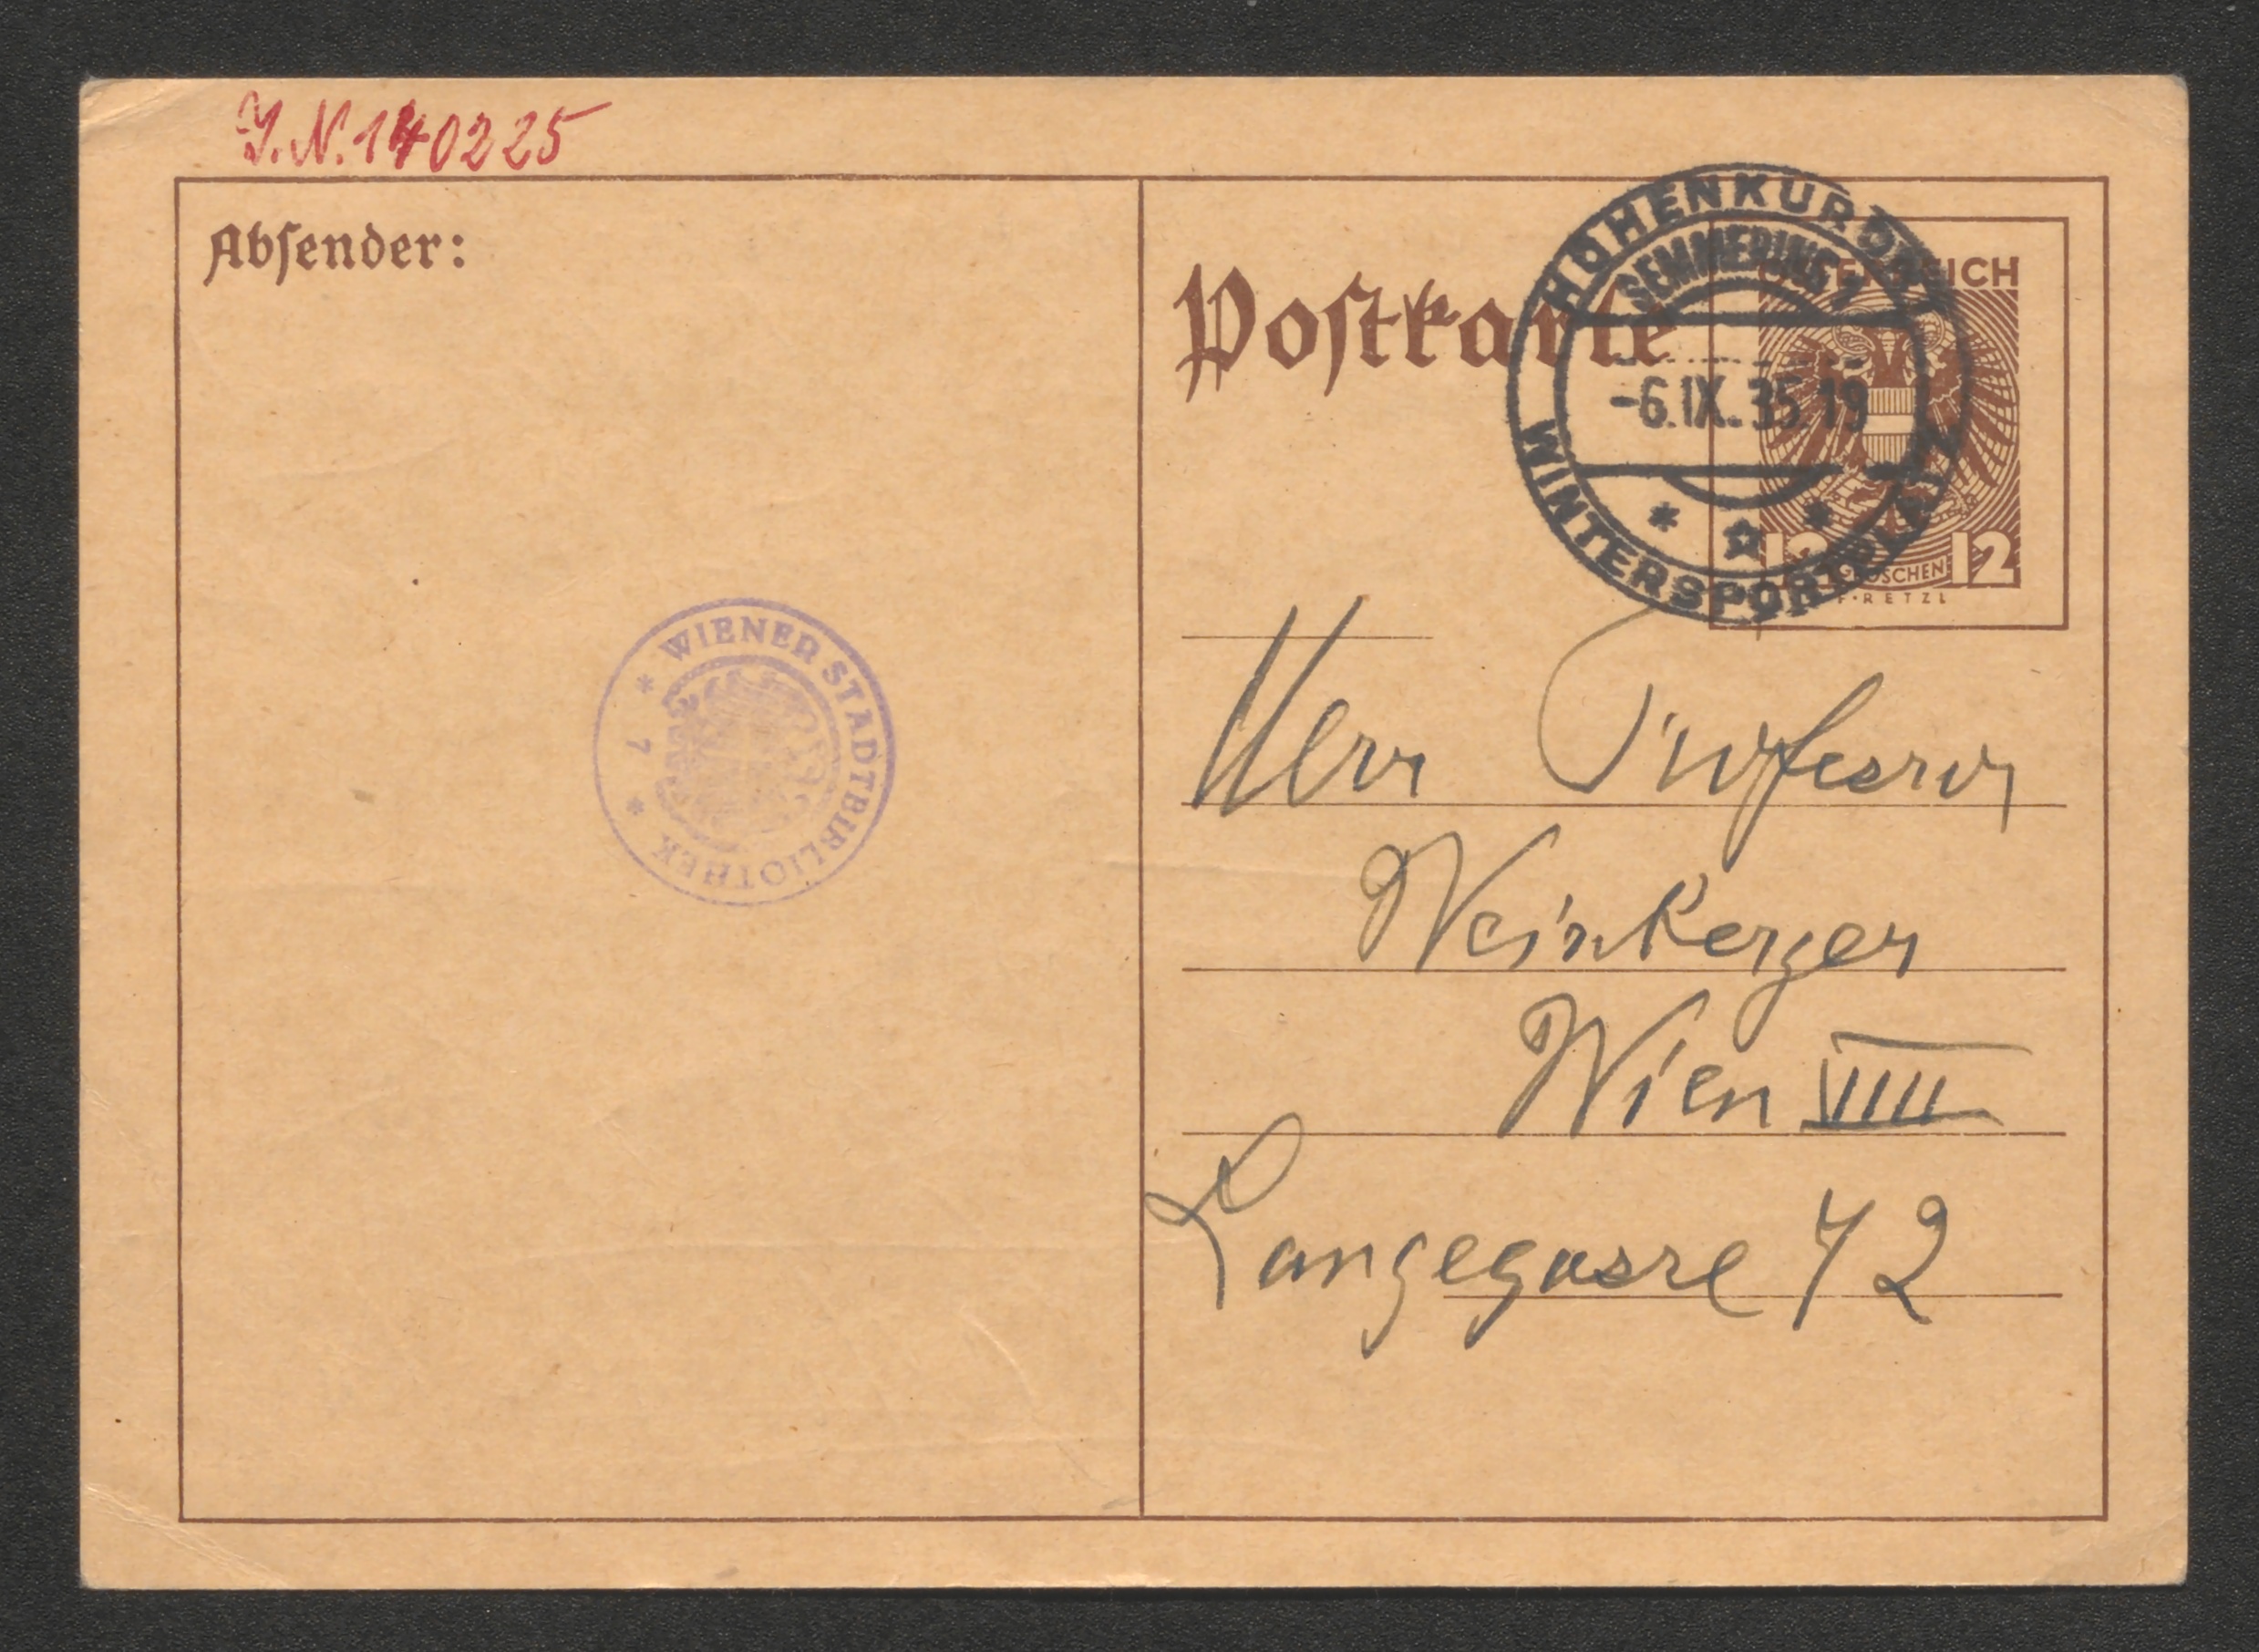 I.N. 140225
Absender:
Postkarte
HÖHENKURORT
SEMMERING 1
-6.IX.35 19
WINTERSPORTPLATZ
ÖSTERREICH
12 GROSCHEN 12
F·RETZL
WIENER STADTBIBLIOTHEK
* 7 *
Herr Professor
Weinberger
Wien VIII
Langegasse 72